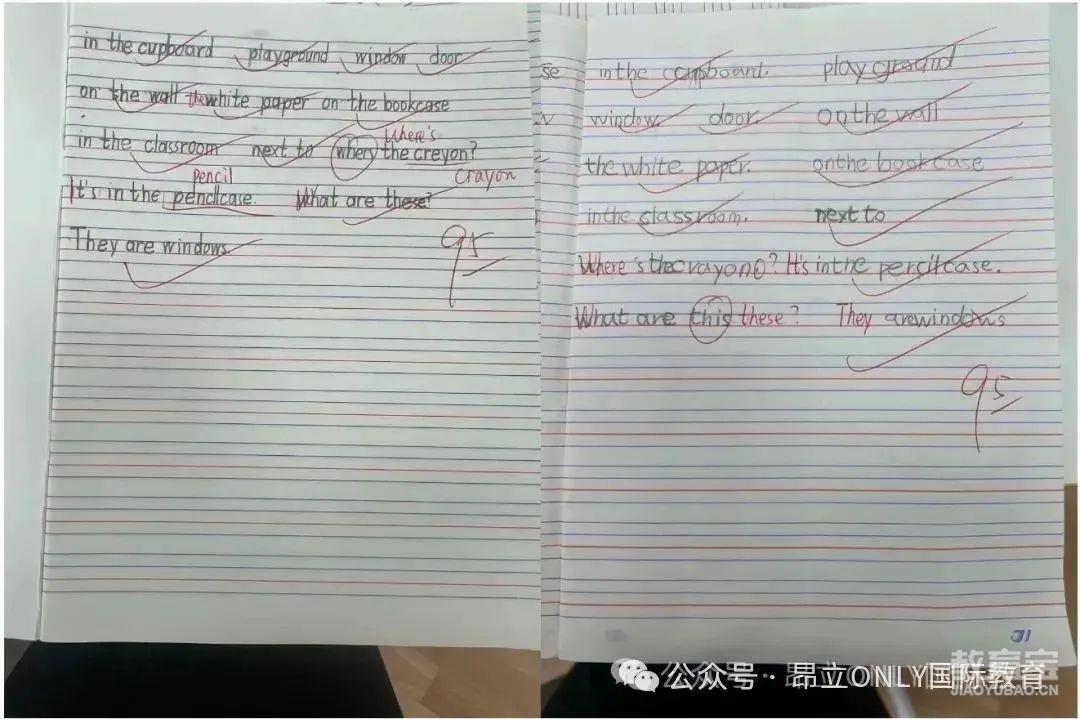 in the cupboard playground window door
on the wall the white paper on the bookcase
Where's
in the classroom next to whery the creyon?
pencil crayon
It's in the penclcase. What are these?
They are windows
95
se in the cupboard. playground
window. door. on the wall
the white paper. on the bookcase
in the classroom. next to
Where's the crayon? It's in the pencilcase.
What are this these? They are windows
95
公众号·昂立ONLY国际教育
教育宝
JIAOYUBAO.CN